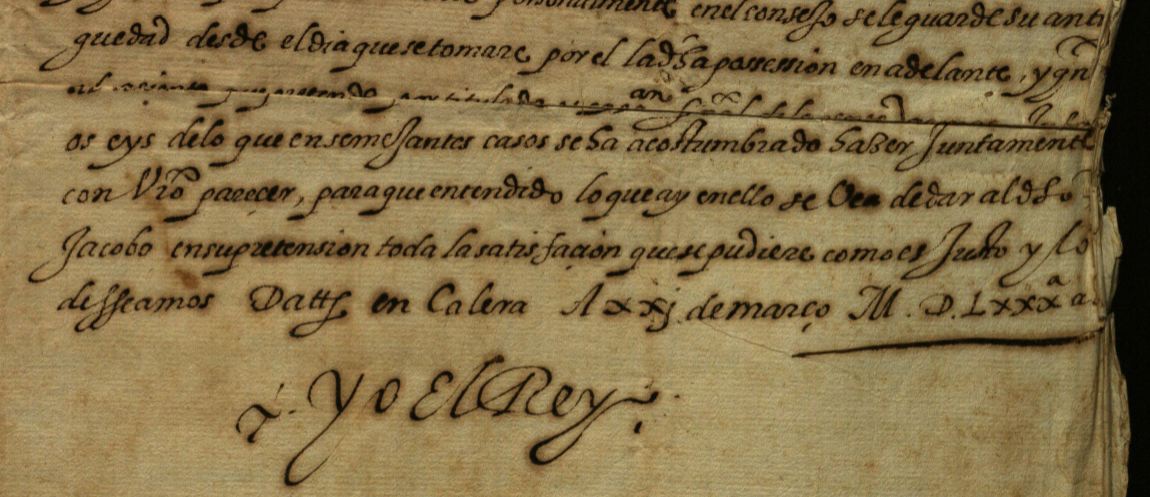 personalmente, en el consejo se le guarde su anti
guedad desde el dia que se tomare por el la dha possession en adelante, y qn
an
os eys de lo que en semejantes casos se ha acostumbrado hazer Juntamente
con Vro parecer, para que entendido lo que ay en ello se Vea de dar al dho
Jacobo en su pretension toda la satisfación que se pudiere como es Justo y lo
desseamos Datts en Calera A xxj de março M. D. Lxxx a
Yo El Rey